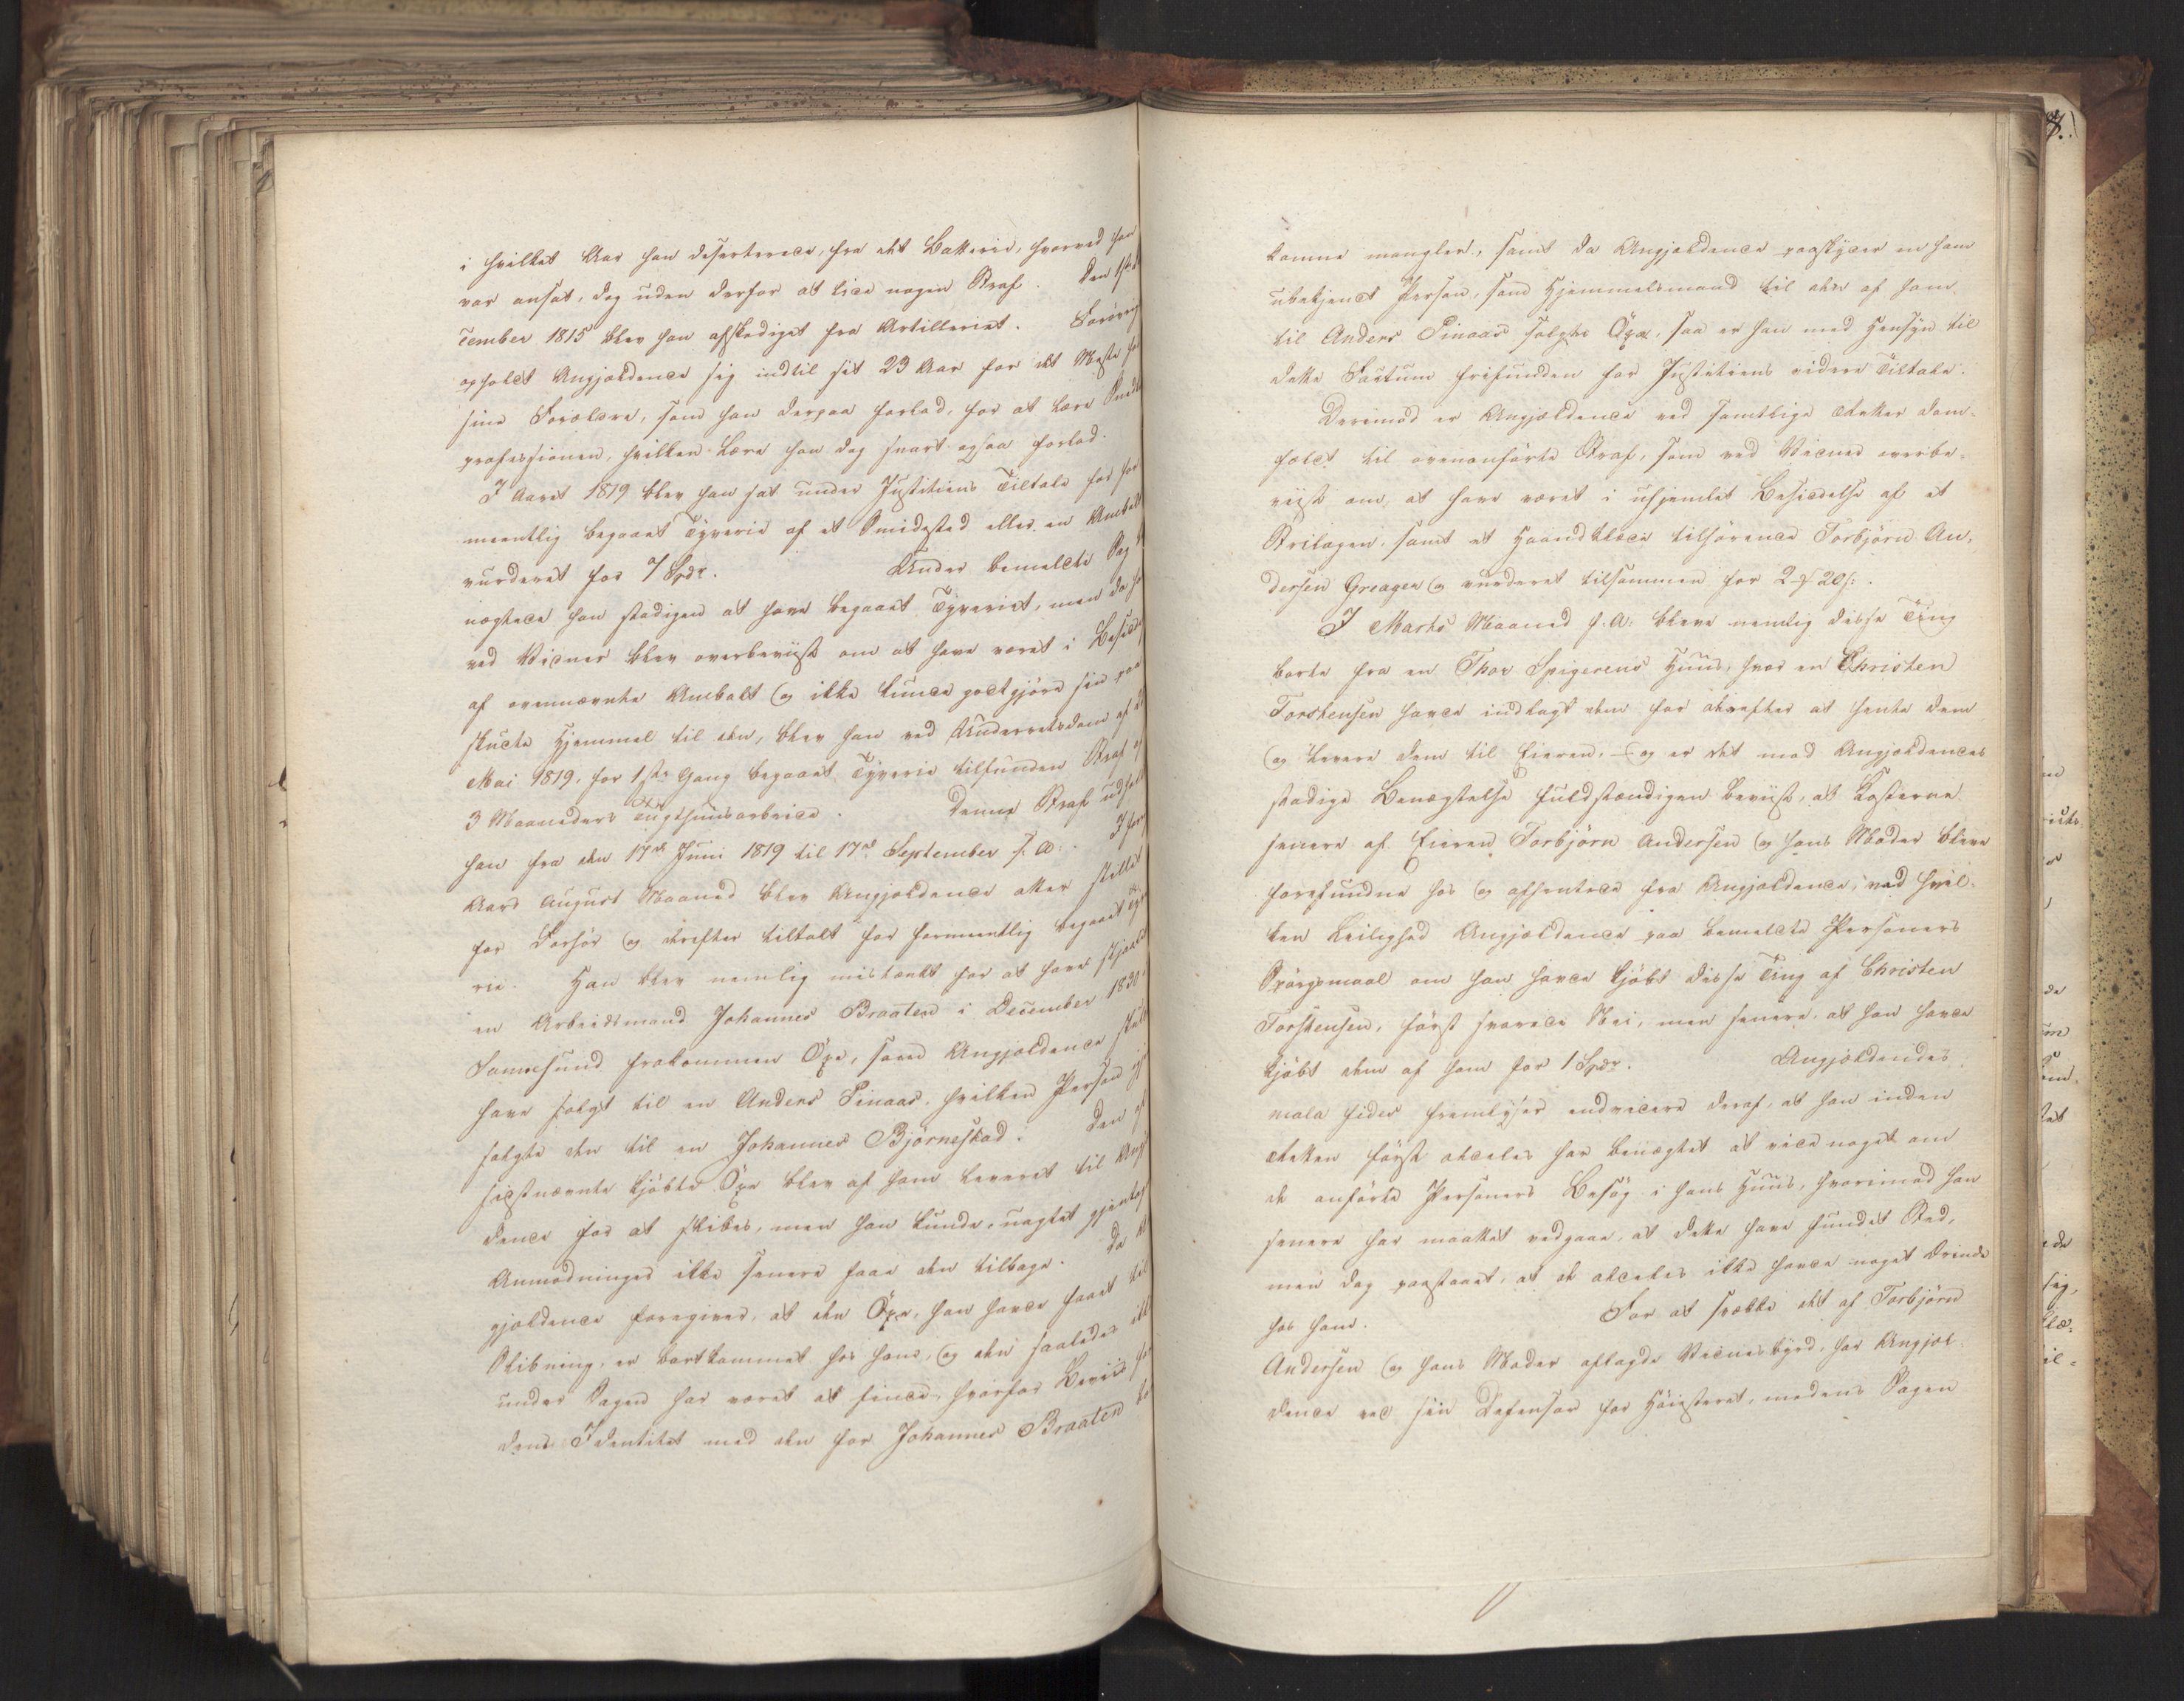 i hvilket Aar han deserterede, fra det Batterie, hvorved han
var ansat, dog uden derfor at lide nogen Straf. Den 1ste
cember 1815 blev han afskediget fra Artilleriet. Forøvrig
opholdt Angjældende sig indtil sit 23 Aar for det Meste ho
sine Forældre, som han derpaa forlod, for at lære Smede
professionen, hvilken Lære han dog snart ogsaa forlod.
I Aaret 1819 blev han sat under Justitiens Tiltale for for
meentlig begaaet Tyverie af et Smidested eller en Ambolt
vurderet for 7 Spdr. Under bemeldte Sag
negtede han stadigen at have begaaet Tyveriet, men da ha
ved Vidner blev overbeviist om at have været i Besidd
af ovennævnte Ambolt og ikke kunde godtgjøre sin paa
skudte Hjemmel til den, blev han ved Underretsdom af
Mai 1819, for 1ste Gang begaaet Tyverie tilfunden Straf af
3 Maaneders Tugthuusarbeide. Denne Straf udholdt
han fra den 17de Juni 1819 til 17de September s. A. I for
Aars August Maaned blev Angjældende atter stillet
for Forhør og derefter tiltalt for formeentlig begaaet Tyve
rie. Han blev nemlig mistænkt for at have stjaalet
en Arbeidsmand Johannes Braaten i December 1830
Samesund frakommen Øxe, som Angjældende skulde
have solgt til en Anders Pinaas, hvilken Person igjen
solgte den til en Johannes Bjørneskad. Den af
sidstnævnte kjøbte Øxe blev af ham leveret til Angjæl
dende for at skibes, men han kunde, uagtet gjentagne
Anmodninger ikke senere faae den tilbage. Da An
gjældende foregiver, at den Øxe, han havde faaet til
Skibning, er bortkommet hos ham, og den saaledes ikke
under Sagen har været at finde, hvorfor Beviis for
dens Identitet med den for Johannes Braaten bort
komne mangler, samt da Angjældende paaskyder en ham
ubekjendt Person, som Hjemmelsmand til den af ham
til Anders Pinaas solgte Øxe, saa er han med Hensyn til
dette Factum frifunden for Justitiens videre Tiltale.
Derimod er Angjældende ved samtlige Retter dom-
fældt til ovenanførte Straf, som ved Vidner overbe-
viist om, at have været i uhjemlet Besiddelse af et
Strilagen, samt et Haandklæde tilhørende Torbjørn An-
dersen Greager og vurderet tilsammen for 2 ort 20 s.
I Marts Maaned f. A. bleve nemlig disse Ting
borte fra en Thor Spigerens Huus, hvor en Christen
Torstensen havde indlagt dem for derefter at hente dem
og levere dem til Eieren, – og er det mod Angjældendes
stadige Benægtelse fuldstændigen beviist, at Kosterne
senere af Eieren Torbjørn Andersen og hans Moder bleve
forefundne hos og afhentede fra Angjældende, ved hvil-
ken Leilighed Angjældende paa bemeldte Personers
Spørgsmaal om han havde kjøbt disse Ting af Christen
Torstensen, først svarede Nei, men senere, at han havde
kjøbt dem af ham for 1 Spdr. Angjældendes
mala fides fremlyser endvidere deraf, at han inden
Retten først aldeles har benægtet at vide noget om
de anførte Personers Besøg i hans Huus, hvorimod han
senere har maattet vedgaae, at dette have fundet Sted,
men dog paastaaet, at de aldeles ikke havde noget Ærinde
hos ham. For at svække det af Torbjørn
Andersen og hans Moder aflagde Vidnesbyrd, har Angjæl-
dende ved sin Defensor for Høiesteret, medens Sagen